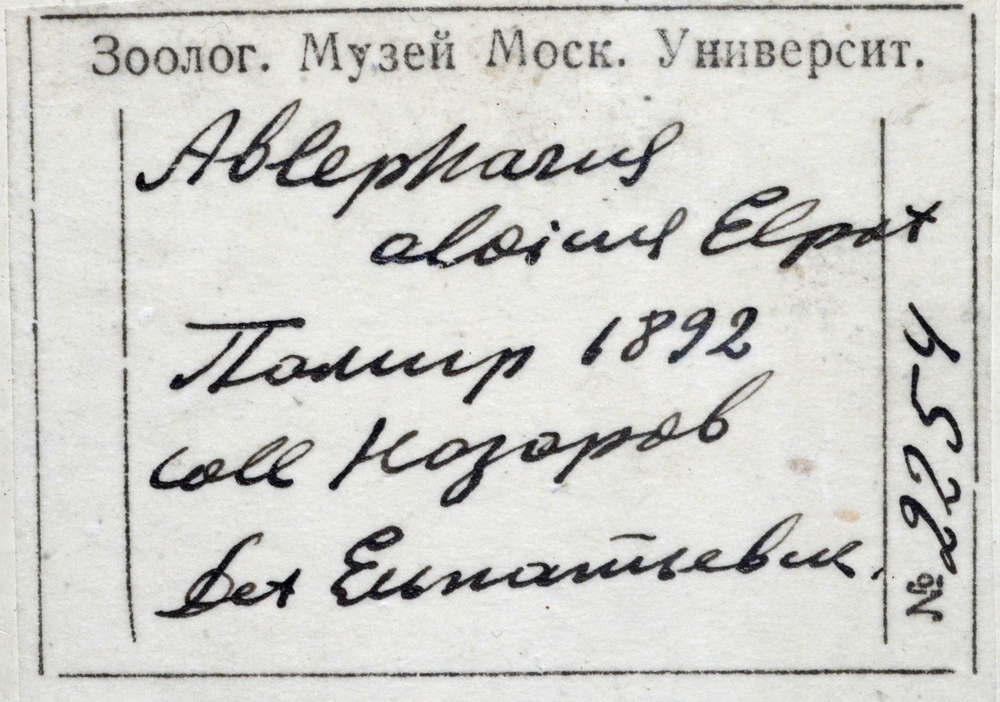 Зоолог. Музей Моск. Университ.
Ablepharus
alaicus Elpat
Памир 1892
coll Назаров
det Елпатьевск.
№ 2254